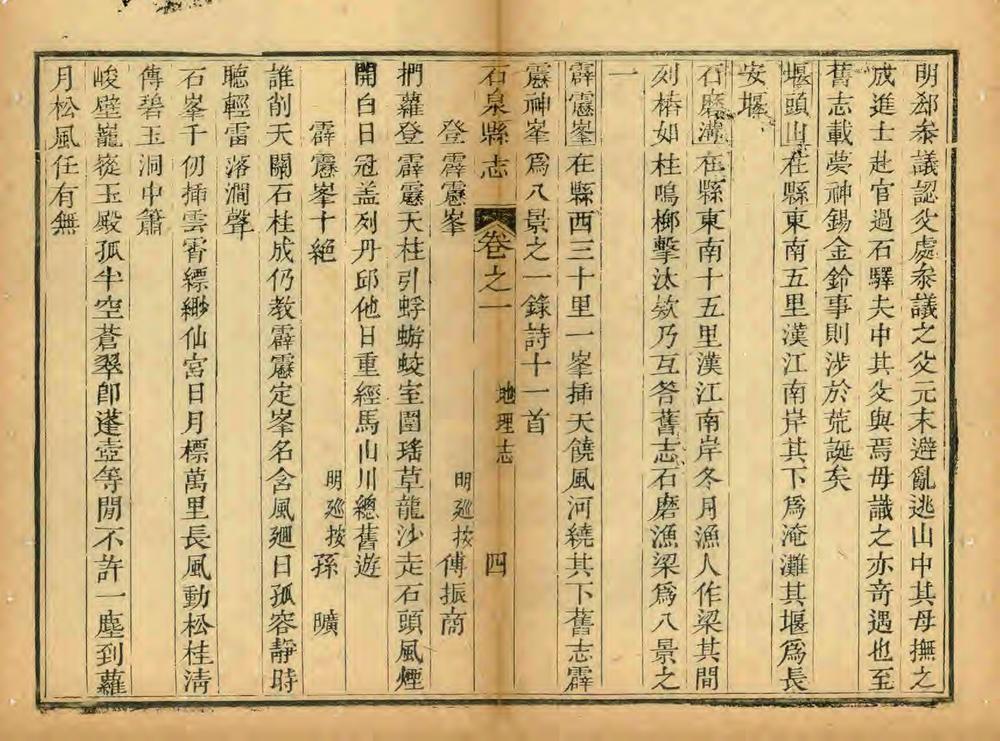 明郄叅議認父處叅議之父元末避亂逃山中其母撫之
成進士赴官過石驛夫中其父與焉母識之亦奇遇也至
舊志載夢神錫金鈴事則涉於荒誕矣
堰頭山在縣東南五里漢江南岸其下爲淹灘其堰爲長
安堰
石磨溝在縣東南十五里漢江南岸冬月漁人作梁其間
列樁如柱鳴榔擊汰欸乃互答舊志石磨漁梁爲八景之
一
霹靂峯在縣西三十里一峯揷天饒風河繞其下舊志霹
靂神峯爲八景之一錄詩十一首
石泉縣志 卷之一 地理志 四
登霹靂峯 明廵按 傅振商
捫蘿登霹靂天柱引蜉蝣蛟室圍瑤草龍沙走石頭風煙
開白日冠盖列丹邱他日重經馬山川總舊遊
霹靂峯十絶 明廵按 孫曠
誰削天關石柱成仍教霹靂定峯名含風廻日孤容靜時
聽輕雷落澗聲
石峯千仞揷雲霄縹緲仙宮日月標萬里長風動松桂淸
傳碧玉洞中簫
峻壁巃嵸玉殿孤半空蒼翠卽蓬壺等閒不許一塵到蘿
月松風任有無